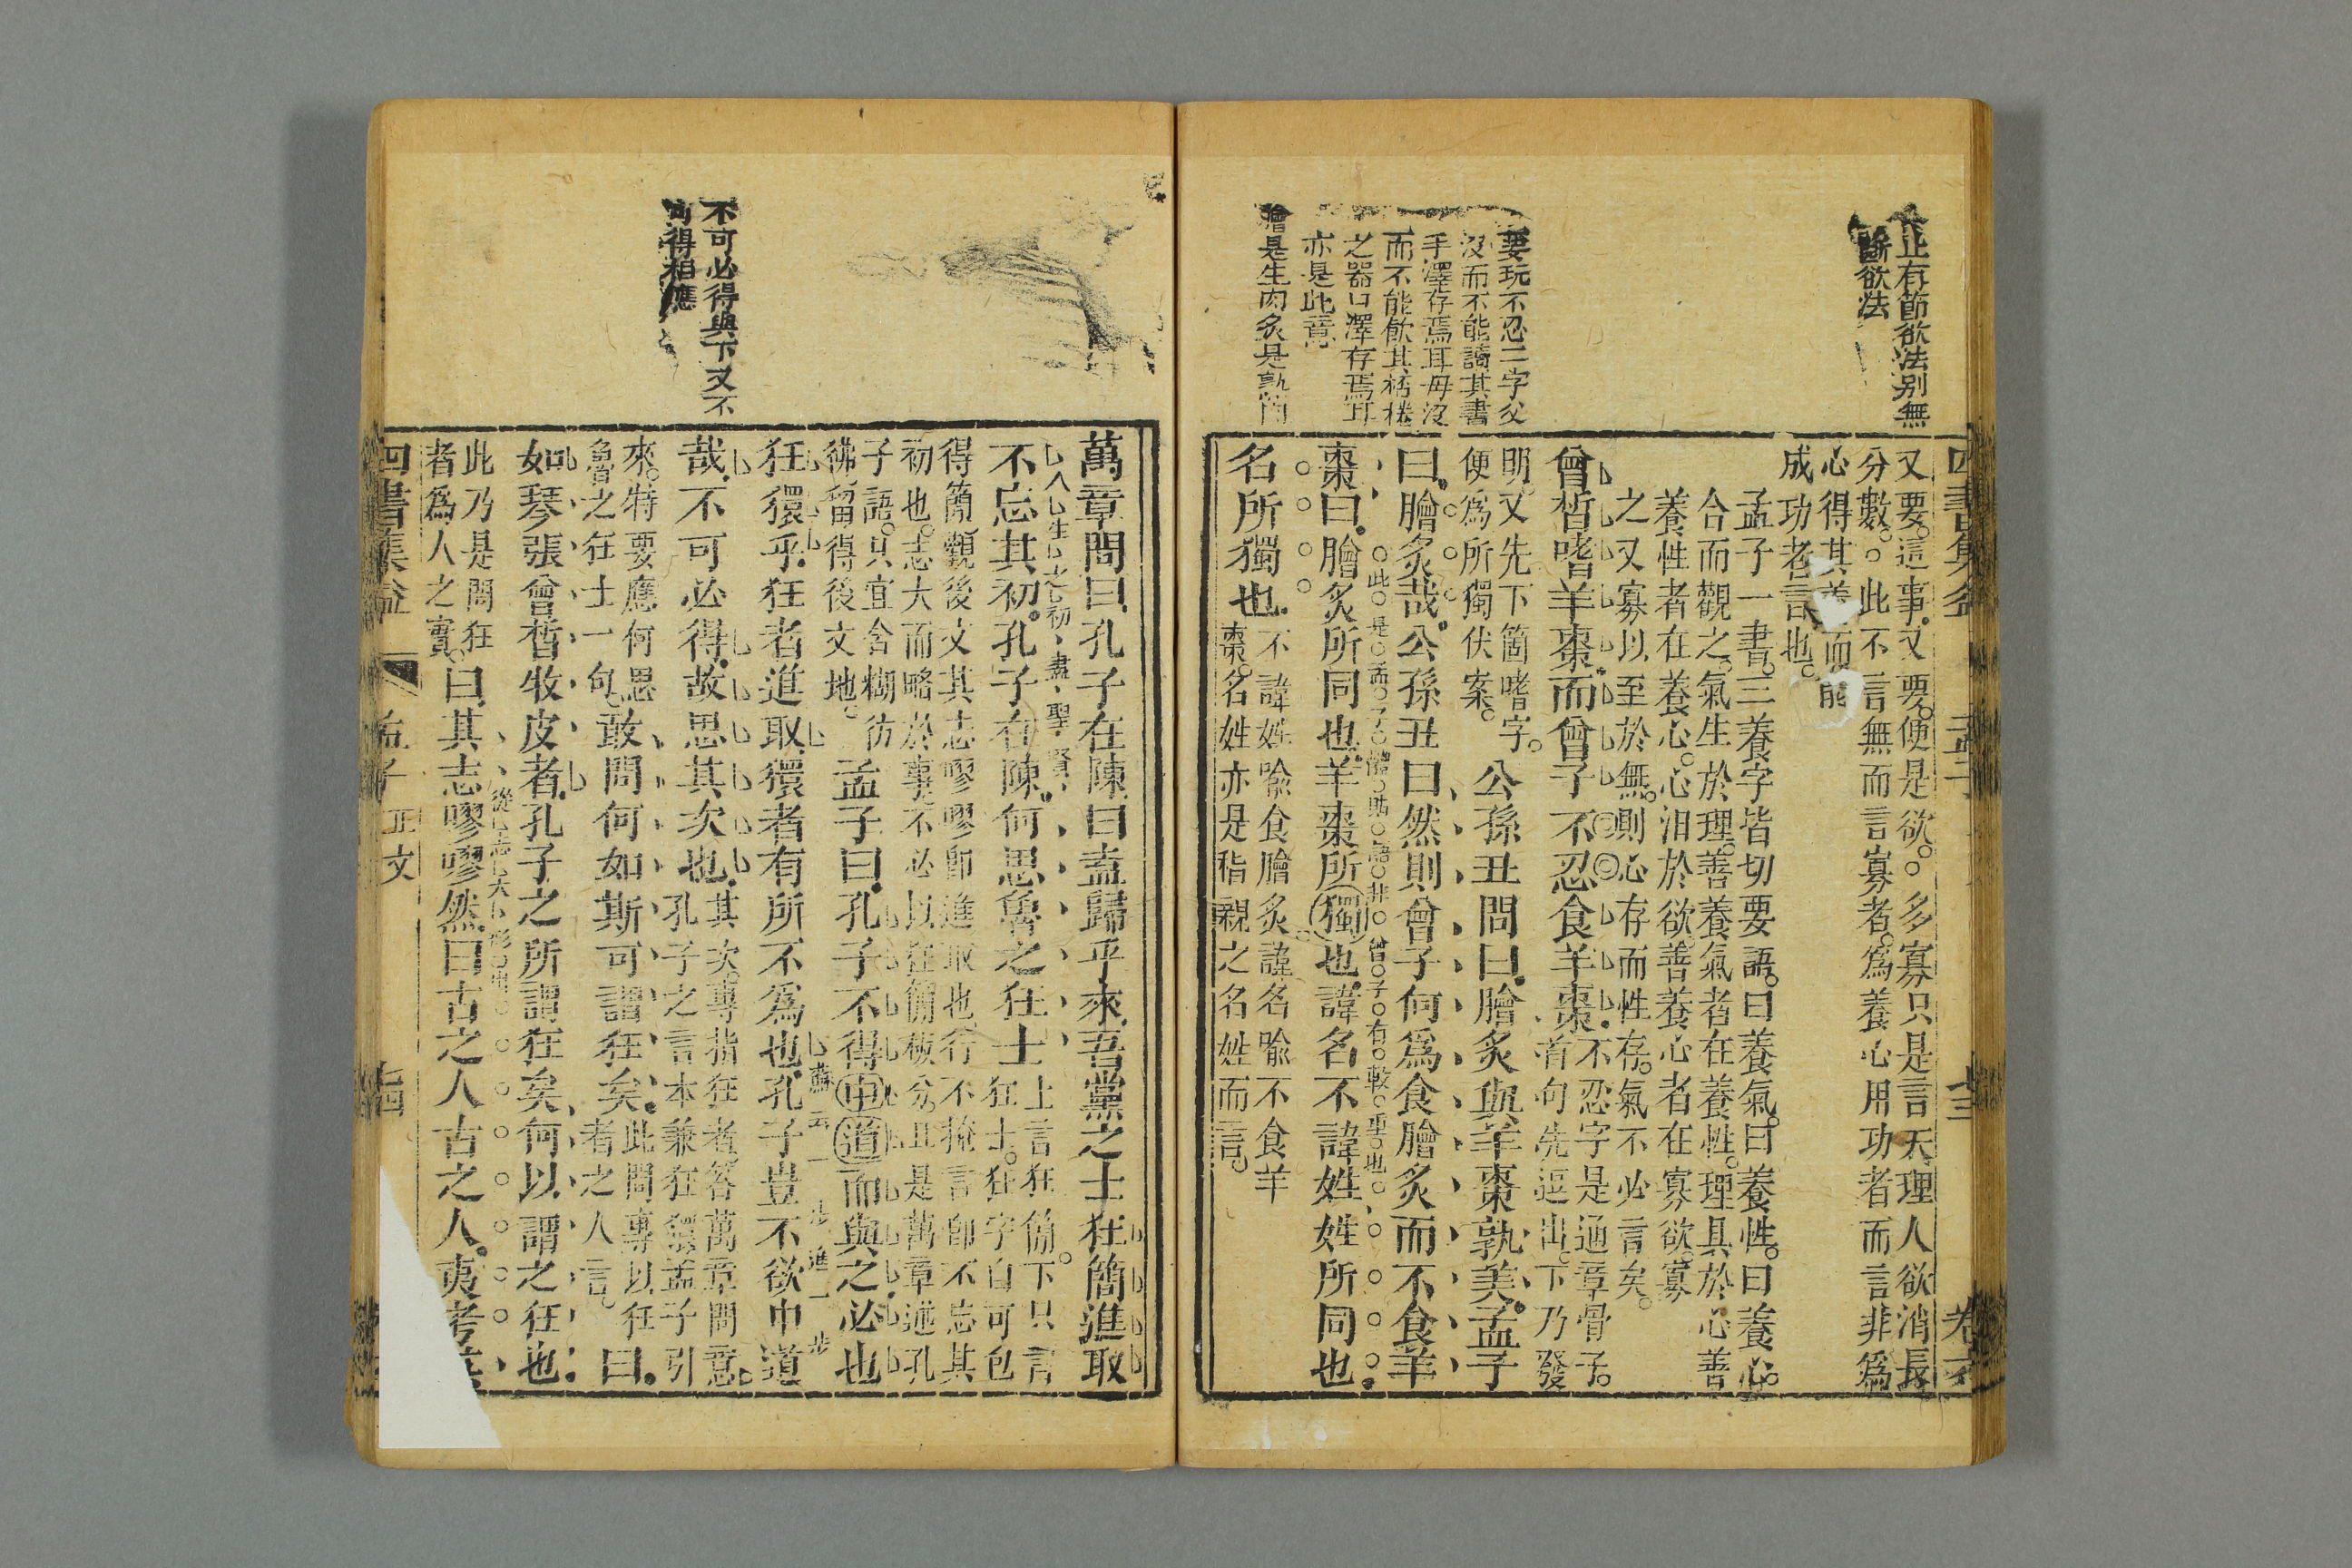 止有節欲法別無
斷欲法
要玩不忍二字父
沒而不能讀其書
手澤存焉耳母沒
而不能飲其桮棬
之器口澤存焉耳
亦是此意
膾是生肉炙是熟肉
四書集益 孟子 卷六
又要這事又要便是欲多寡只是言天理人欲消長
分數此不言無而言寡者為養心用功者而言非為
心得其養而能
成功者言也
孟子一書三養字皆切要語曰養氣曰養性曰養心
合而觀之氣生於理善養氣者在養性理具於心善
養性者在養心心汨於欲善養心者在寡欲寡
之又寡以至於無則心存而性存氣不必言矣
曾晳嗜羊棗而曾子不忍食羊棗不忍字是通章骨子
首句先逗出下乃發
明又先下箇嗜字
便為所獨伏案
公孫丑問曰膾炙與羊棗孰美孟子
曰膾炙哉公孫丑曰然則曾子何為食膾炙而不食羊
此是孟子體貼語非曾子有較重也
棗曰膾炙所同也羊棗所獨也諱名不諱姓姓所同也
名所獨也不諱姓喻食膾炙諱名喻不食羊
棗名姓亦是指親之名姓而言
不可必得與下又不
可得相應
萬章問曰孔子在陳曰盍歸乎來吾黨之士狂簡進取
不忘其初孔子在陳何思魯之狂士上言狂簡下只言
狂士狂字自可包
得簡觀後文其志嘐嘐即進取也行不掩言即不忘其
初也志大而略於事不必以狂簡板分且是萬章述孔
子語只宜含糊彷
彿留得後文地
孟子曰孔子不得中道而與之必也
蘇云一步進一步
狂獧乎狂者進取獧者有所不為也孔子豈不欲中道
哉不可必得故思其次也其次專指狂者答萬章問意
孔子之言本兼狂獧孟子引
來特要應何思
魯之狂士一句
敢問何如斯可謂狂矣此問專以狂
者之人言
曰
如琴張曾晳牧皮者孔子之所謂狂矣何以謂之狂也
此乃是問狂
者為人之實
曰其志嘐嘐然曰古之人古之人夷考其
四書集益 孟子 正文